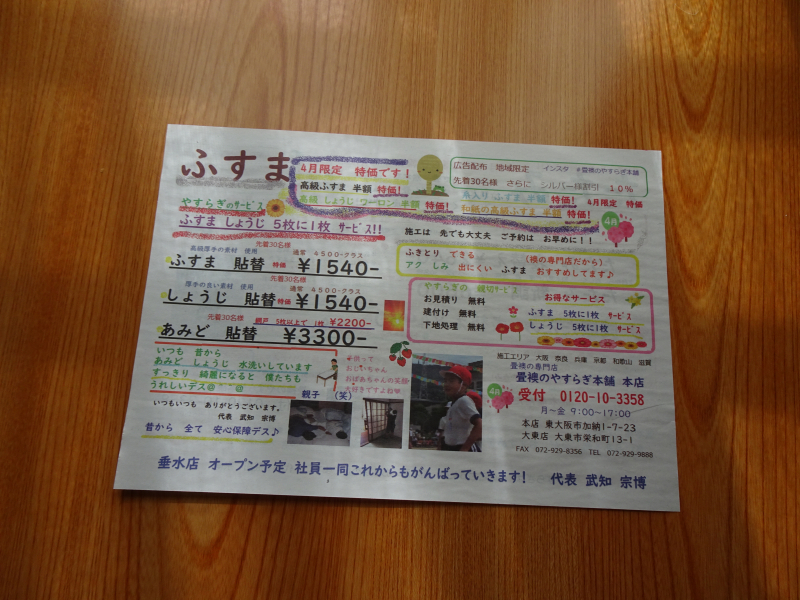 ふすま
4月限定 特価です!
高級ふすま 半額 特価!
高級 しょうじ ワーロン 半額 特価!
糸入り ふすま 半額 特価! 4月限定 特価
和紙の高級ふすま 半額 特価!
広告配布 地域限定 インスタ #畳襖のやすらぎ本舗
先着30名様 さらに シルバー様割引 10%
4月
やすらぎのサービス
ふすま しょうじ 5枚に1枚 サービス!!
施工は 先でも大丈夫 ご予約は お早めに!!
先着30名様
高級厚手の素材 使用 通常 4500-クラス
ふすま 貼替 特価 ¥1540-
先着30名様
厚手の良い素材 使用 通常 4500-クラス
しょうじ 貼替 特価 ¥1540-
先着30名様 網戸 5枚以上で 1枚 ¥2200-
あみど 貼替 ¥3300-
ふきとり できる (襖の専門店だから)
アク しみ 出にくい ふすま おすすめしてます♪
やすらぎの 親切サービス
お見積り 無料
建付け 無料
下地処理 無料
お得なサービス
ふすま 5枚に1枚 サービス
しょうじ 5枚に1枚 サービス
いつも 昔から
あみど しょうじ 水洗いしています
すっきり 綺麗になると 僕たちも
うれしいデス@ @
おじいちゃん
おばあちゃんの笑顔
親子 (笑)
いつもいつも ありがとうございます。
代表 武知 宗博
昔から 全て 安心保障デス♪
施工エリア 大阪 奈良 兵庫 京都 和歌山 滋賀
畳襖の専門店
畳襖のやすらぎ本舗 本店
4月
受付 0120-10-3358
月~金 9:00~17:00
本店 東大阪市加納1-7-23
大東店 大東市栄和町13-1
FAX 072-929-8356 TEL 072-929-9888
垂水店 オープン予定 社員一同これからもがんばっていきます! 代表 武知 宗博